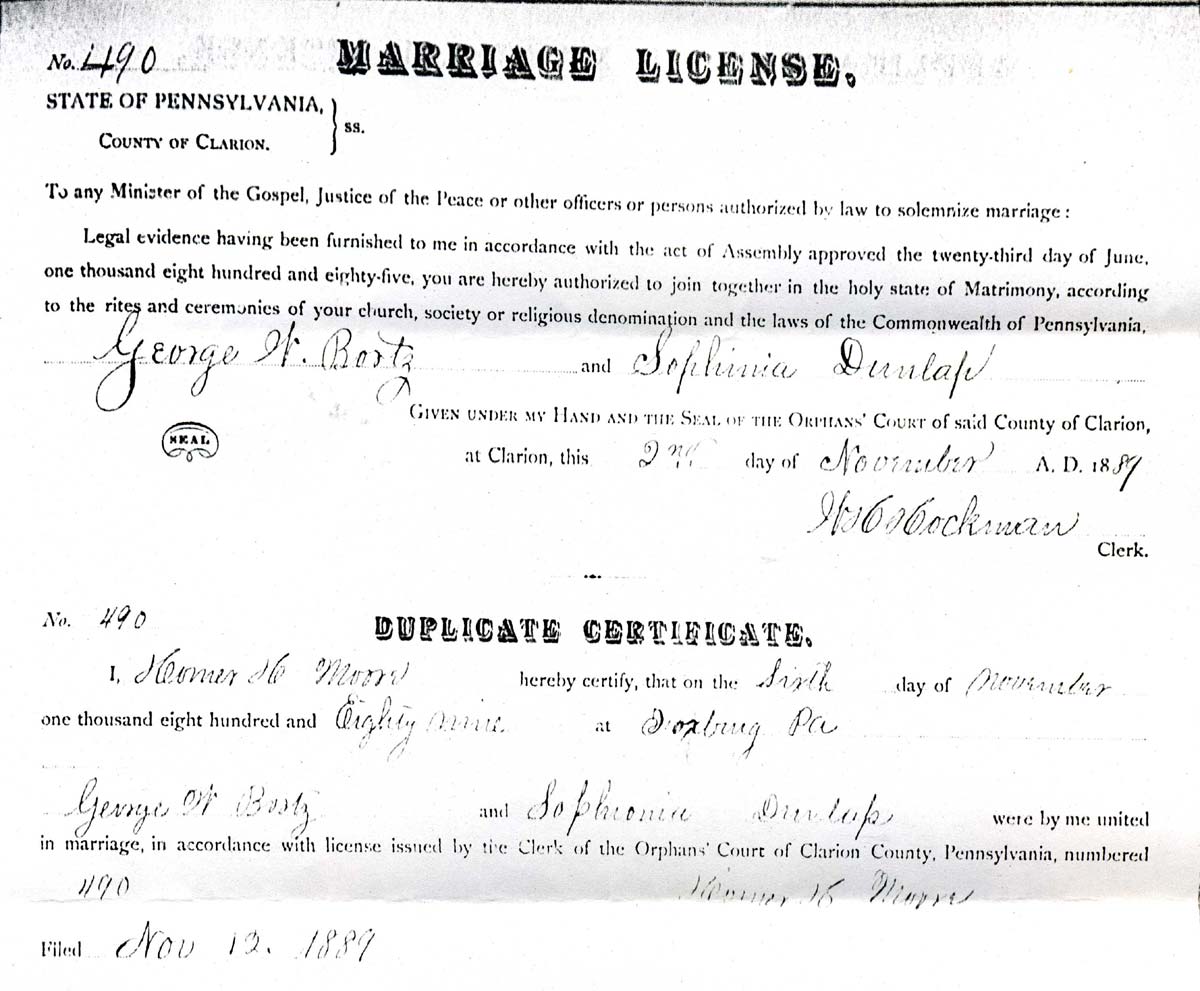 No. 490 MARRIAGE LICENSE.
STATE OF PENNSYLVANIA,
COUNTY OF CLARION. } ss.
To any Minister of the Gospel, Justice of the Peace or other officers or persons authorized by law to solemnize marriage:
Legal evidence having been furnished to me in accordance with the act of Assembly approved the twenty-third day of June,
one thousand eight hundred and eighty-five, you are hereby authorized to join together in the holy state of Matrimony, according
to the rites and ceremonies of your church, society or religious denomination and the laws of the Commonwealth of Pennsylvania,
George W. Bortz and Sophinia Dunlap
GIVEN UNDER MY HAND AND THE SEAL OF THE ORPHANS' COURT of said County of Clarion,
SEAL
at Clarion, this 2nd day of November A. D. 1889
Hockman
Clerk.
No. 490 DUPLICATE CERTIFICATE.
I, Homer H Moore hereby certify, that on the Sixth day of November
one thousand eight hundred and Eighty nine at Foxburg Pa
George W Bortz and Sophronia Dunlap were by me united
in marriage, in accordance with license issued by the Clerk of the Orphans' Court of Clarion County, Pennsylvania, numbered
490 Homer H Moore
Filed Nov 12. 1889